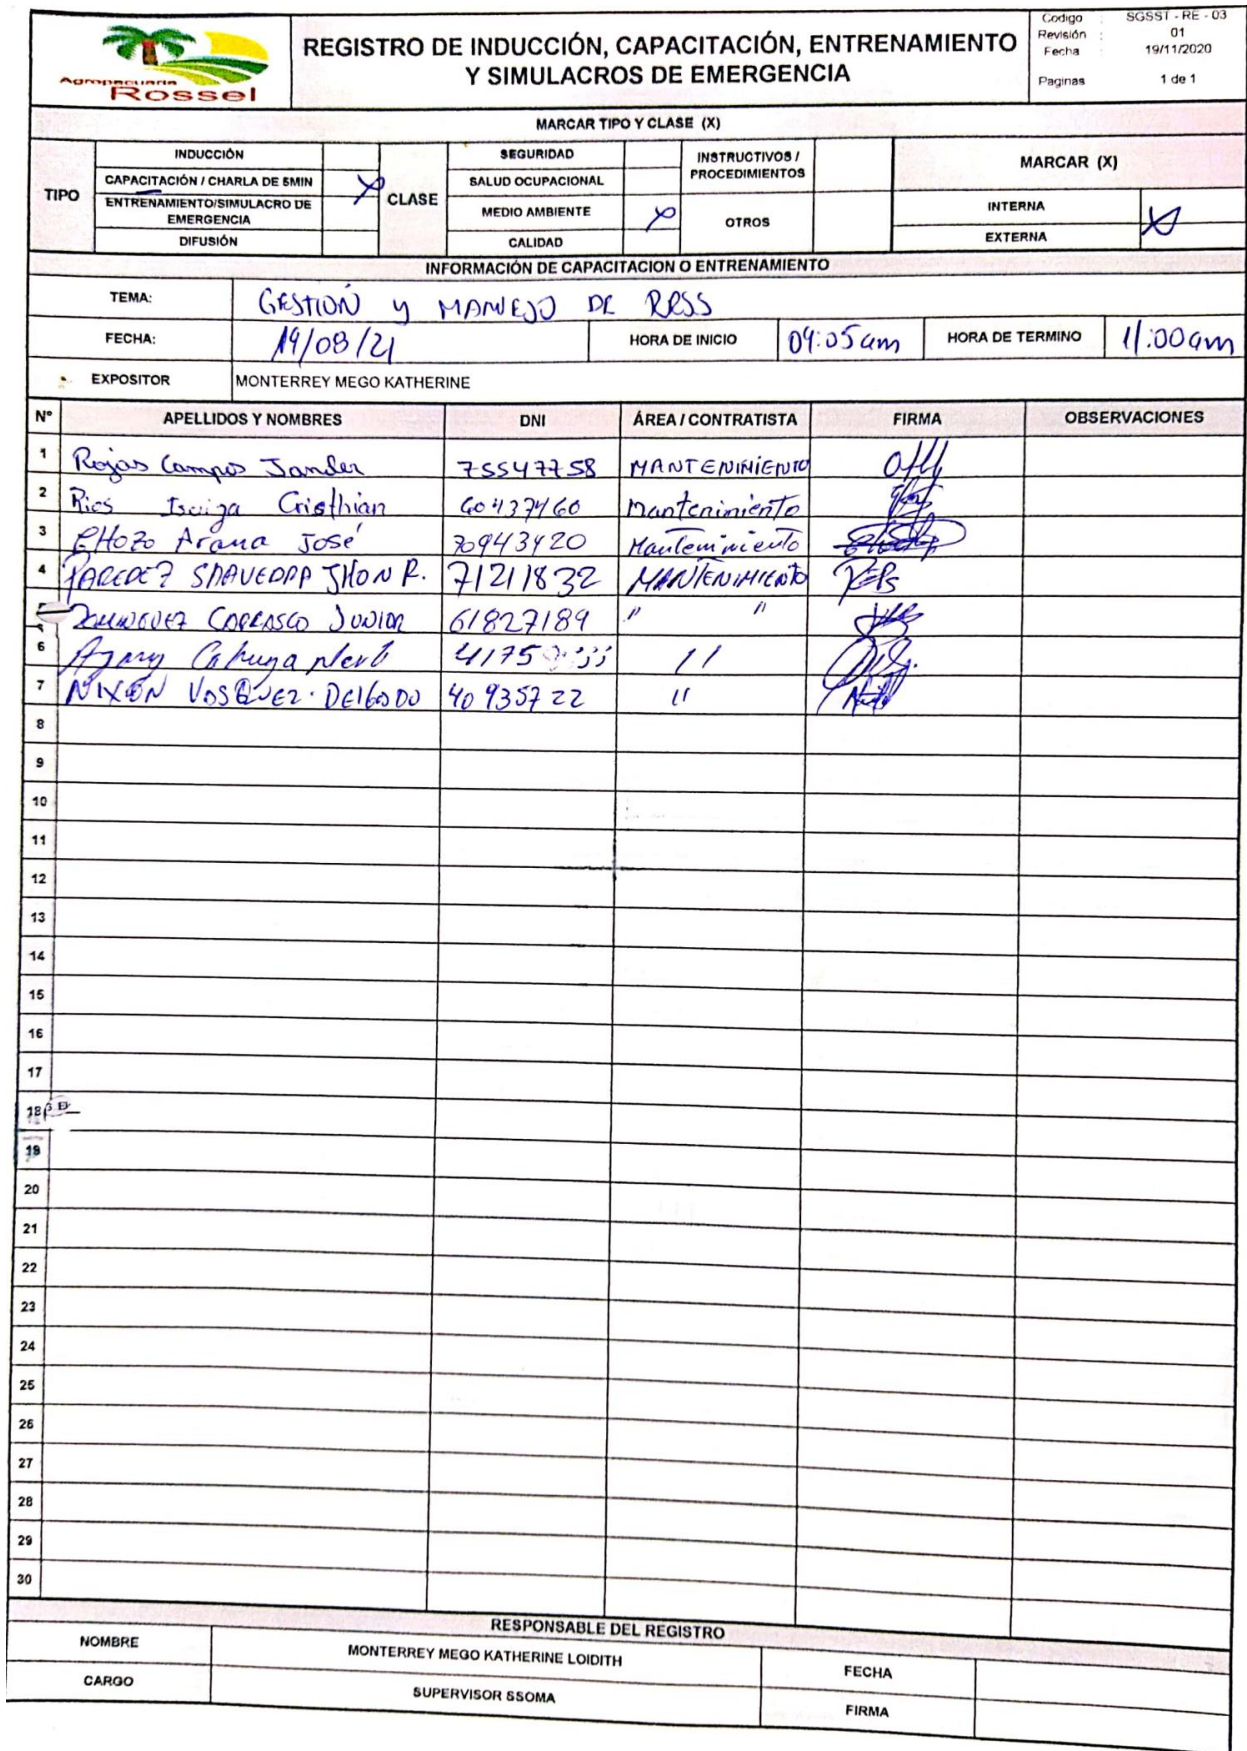 Agropecuaria
Rossel
REGISTRO DE INDUCCIÓN, CAPACITACIÓN, ENTRENAMIENTO
Y SIMULACROS DE EMERGENCIA
Codigo : SGSST - RE - 03
Revisión : 01
Fecha : 19/11/2020
Paginas 1 de 1
MARCAR TIPO Y CLASE (X)
TIPO
INDUCCIÓN
CAPACITACIÓN / CHARLA DE 5MIN X
ENTRENAMIENTO/SIMULACRO DE
EMERGENCIA
DIFUSIÓN
CLASE
SEGURIDAD
SALUD OCUPACIONAL
MEDIO AMBIENTE X
CALIDAD
INSTRUCTIVOS /
PROCEDIMIENTOS
OTROS
MARCAR (X)
INTERNA X
EXTERNA
INFORMACIÓN DE CAPACITACION O ENTRENAMIENTO
TEMA: GESTION y MANEJO DE RRSS
FECHA: 19/08/21 HORA DE INICIO 09:05am HORA DE TERMINO 11:00am
EXPOSITOR MONTERREY MEGO KATHERINE
N° APELLIDOS Y NOMBRES DNI ÁREA / CONTRATISTA FIRMA OBSERVACIONES
1 Rojas Campos Jander 75547758 MANTENIMIENTO
2 Rios Isuiza Cristhian 60437460 Mantenimiento
3 CHOZO Arana José 70943420 Mantenimiento
4 PAREDEZ SAAVEDRA JHON R. 71211832 MANTENIMIENTO
5 DOMINGUEZ CARRASCO JUNIOR 61827189 " "
6 41759 "
7 NIXON VASQUEZ DELGADO 40935722 "
8
9
10
11
12
13
14
15
16
17
18
19
20
21
22
23
24
25
26
27
28
29
30
RESPONSABLE DEL REGISTRO
NOMBRE MONTERREY MEGO KATHERINE LOIDITH FECHA
CARGO SUPERVISOR SSOMA FIRMA